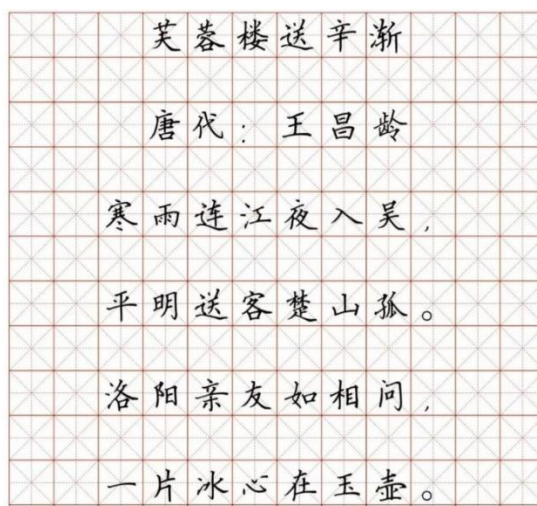 芙蓉楼送辛渐
唐代：王昌龄
寒雨连江夜入吴，
平明送客楚山孤。
洛阳亲友如相问，
一片冰心在玉壶。